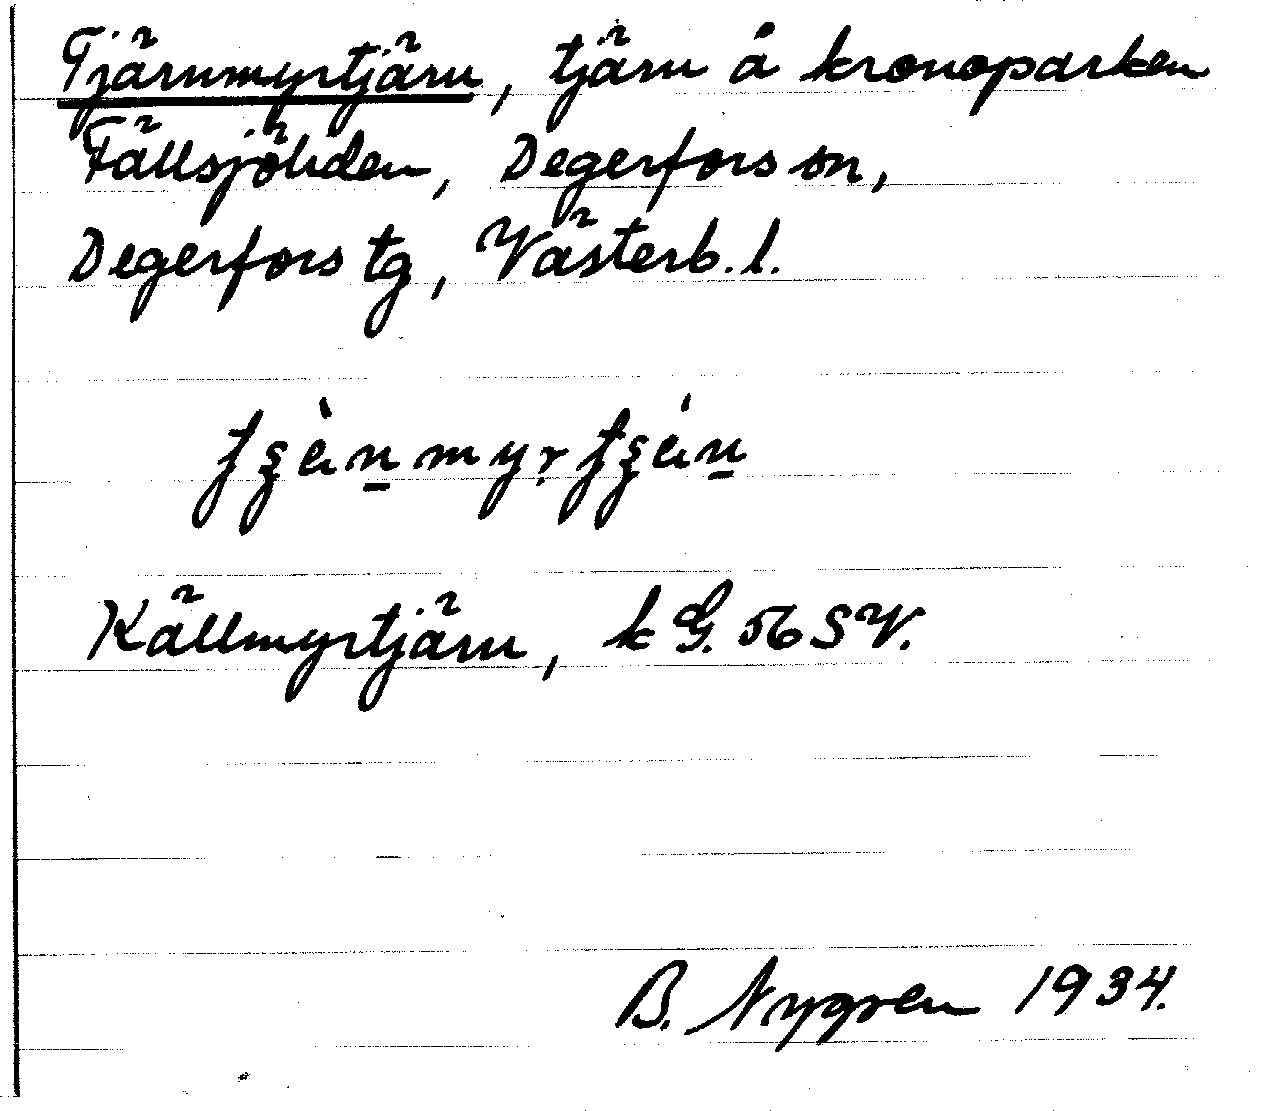 Tjärnmyrtjärn, tjärn å kronoparken
Fällsjöliden, Degerfors sn,
Degerfors tg, Västerb. l.
Källmyrtjärn, k G. 56 SV.
B. Nygren 1934.